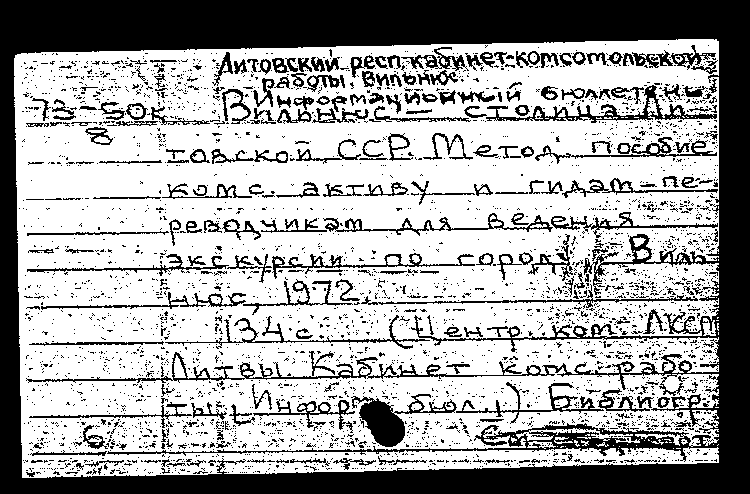 Литовский респ. кабинет комсомольской
работы. Вильнюс.
Информационный бюллетень
73-50к Вильнюс — столица Ли-
8
товской ССР. Метод. пособие
комс. активу и гидам-пе-
реводчикам для ведения
экскурсии по городу. – Виль
нюс, 1972.
134 с. (Центр. ком. ЛКСМ
Литвы. Кабинет комс. рабо-
ты. Информ. бюл. 1). Библиогр.
6 См.